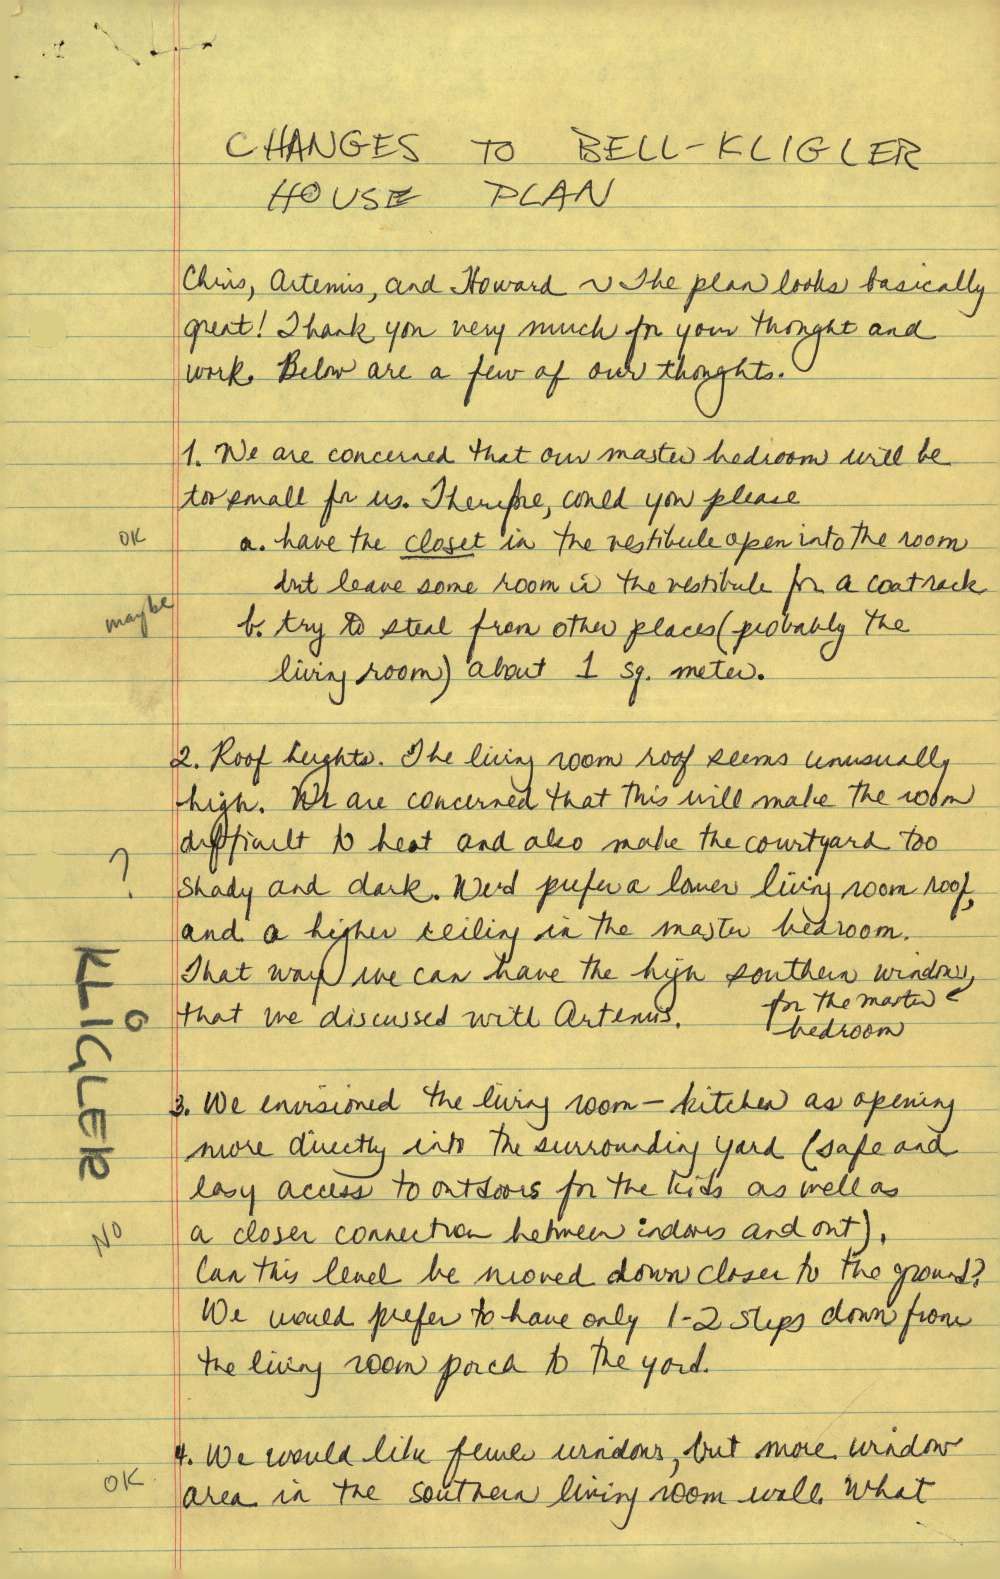 CHANGES TO BELL-KLIGLER
HOUSE PLAN
Chris, Artemis, and Howard ~ The plan looks basically
great! Thank you very much for your thought and
work. Below are a few of our thoughts.
1. We are concerned that our master bedroom will be
too small for us. Therefore, could you please
OK
a. have the closet in the vestibule open into the room
but leave some room in the vestibule for a coatrack
maybe
b. try to steal from other places (probably the
living room) about 1 sq. meter.
2. Roof heights. The living room roof seems unusually
high. We are concerned that this will make the room
difficult to heat and also make the courtyard too
?
shady and dark. We'd prefer a lower living room roof,
and a higher ceiling in the master bedroom.
That way we can have the high southern windows
for the master
bedroom
that we discussed with Artemis.
KLIGLER
3. We envisioned the living room – kitchen as opening
more directly into the surrounding yard (safe and
easy access to outdoors for the kids as well as
NO
a closer connection between indoors and out).
Can this level be moved down closer to the ground?
We would prefer to have only 1-2 steps down from
the living room porch to the yard.
4. We would like fewer windows, but more window
OK
area in the southern living room wall. What